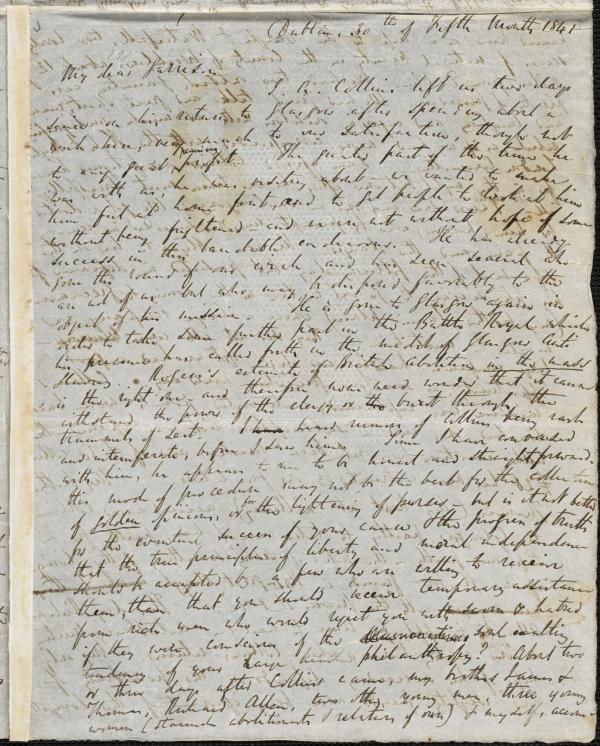 (Dublin, 30th of Fifth Month 1841
My dear Garrison
J. A. Collins left us two days
since on his return to Glasgow after spending about a
week here, very much to our satisfaction though not
to any great pecuniary profit. The greater part of the time he
was with us, he was visiting about — we wanted to make
him feel at home first, and to get people to look at him
without being frightened — and were not without hope of some
success in this laudable endeavour. He has already
gone the round of our circle and has seen several who
are not of us but who may be disposed favorably to the
object of his mission. He is gone to Glasgow again in
order to take some further part in the Battle Royal which
his presence has called forth in the midst of Glasgow Anti
Slavery. Rogers's estimate of British abolition in the mass
is the right one and therefore none need wonder that it cannot
withstand the power of the clergy or burst through the
trammels of sect. I heard rumors of Collins being rash
and intemperate, before I saw him. Since I have conversed
with him, he appears to me to be honest and straightforward.
this mode of procedure may not be the best for the collection
of golden opinions, or the lightening of purses — but is it not better
for the eventual success of your cause & the progress of truth
that the true principles of liberty and moral independence
should be accepted by a few who are willing to receive
them, than that you should receive temporary assistance
from rich men who would reject you with scorn & hatred
if they were conscious of the soul exalting
tendency of your large philanthropy? About two
or three days after Collins came, my brothers James &
Thomas, Richard Allen, two other young men, three young
women (staunch abolitionists & relatives of ours) & myself, accom